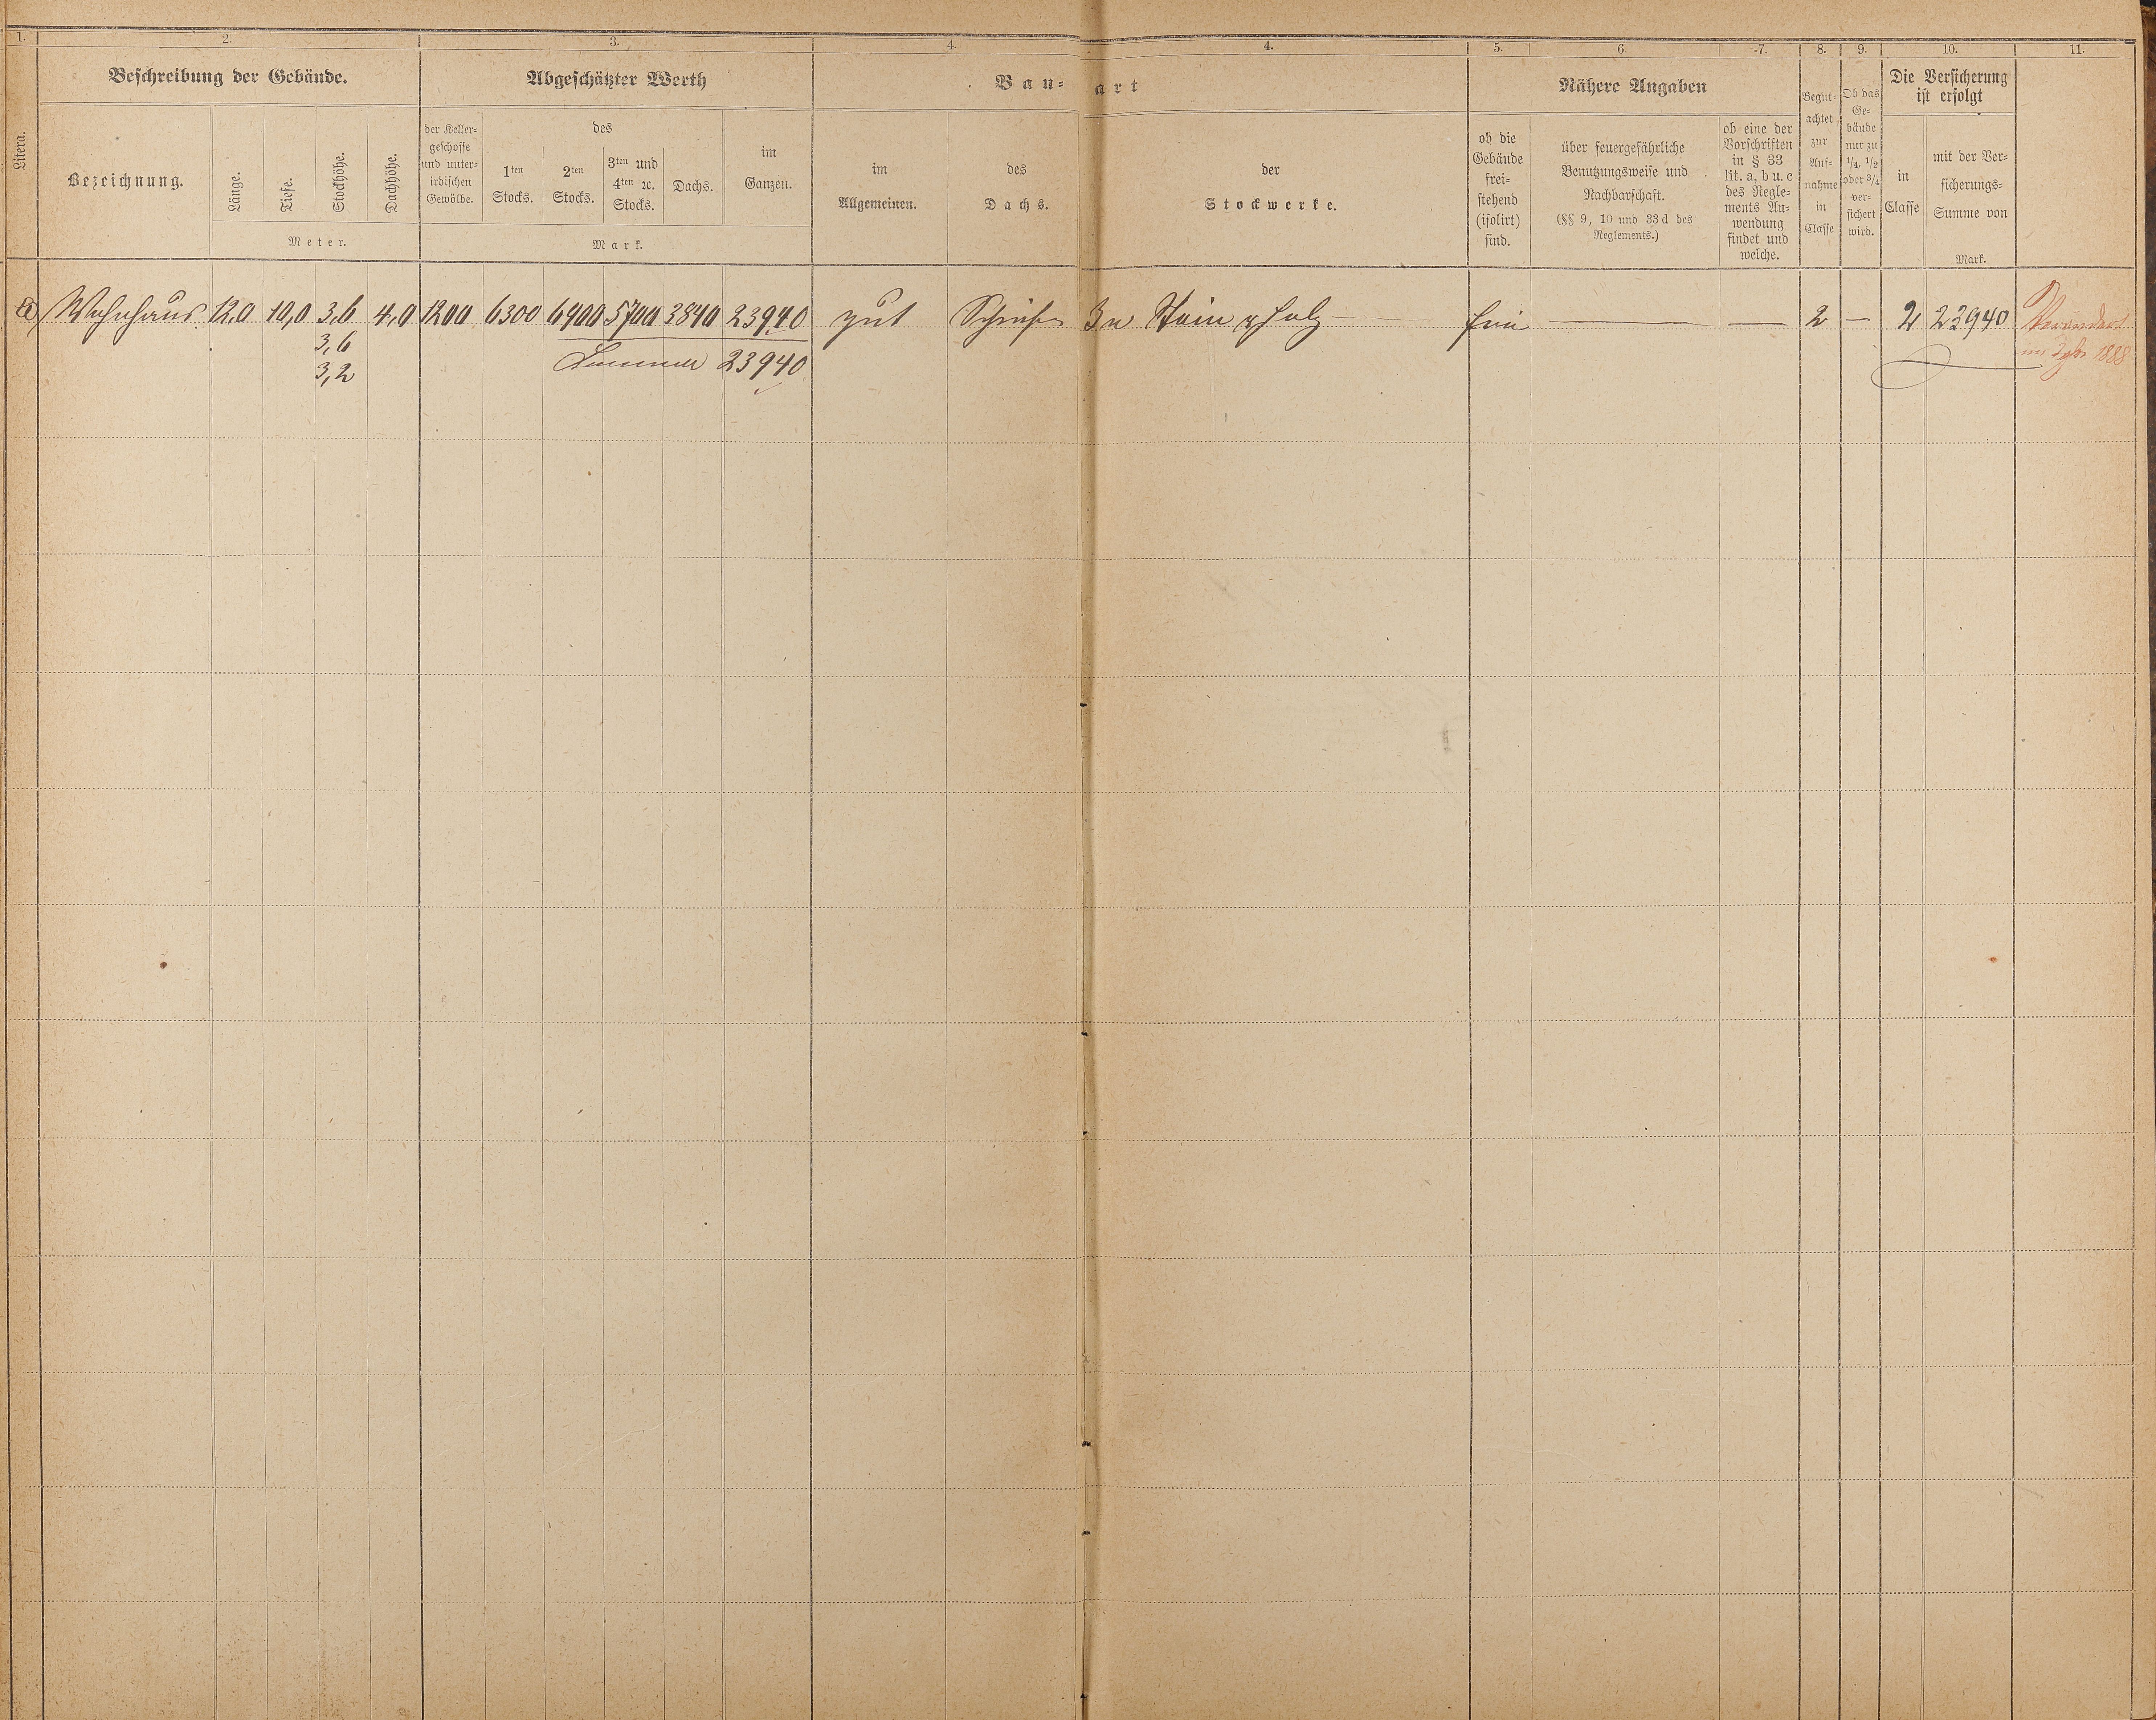 1. 2. 3. 4. 4. 5. 6. 7. 8. 9. 10. 11.
Litera.
Beschreibung der Gebäude.
Bezeichnung.
Länge.
Tiefe.
Stockhöhe.
Dachhöhe.
Meter.
Abgeschätzter Werth
der Keller-
geschosse
und unter-
irdischen
Gewölbe.
des
1ten
Stocks.
2ten
Stocks.
3ten und
4ten ꝛc.
Stocks.
Dachs.
im
Ganzen.
Mark.
Bau-art
im
Allgemeinen.
des
Dachs.
der
Stockwerke.
Nähere Angaben
ob die
Gebäude
frei-
stehend
(isolirt)
sind.
über feuergefährliche
Benutzungsweise und
Nachbarschaft.
(§§ 9, 10 und 33d des
Reglements.)
ob eine der
Vorschriften
in § 33
lit. a, b u. c
des Regle-
ments An-
wendung
findet und
welche.
Begut-
achtet
zur
Auf-
nahme
in
Classe
Ob das
Ge-
bäude
nur zu
1/4, 1/2
oder 3/4
ver-
sichert
wird.
Die Versicherung
ist erfolgt
in
Classe
mit der Ver-
sicherungs-
Summe von
Mark.
a Wohnhaus 12,0 10,0 3,6 4,0 1200 6300 6900 5700 3840 23940 gut Schiefer In Stein & Holz — frei — — 2 — 2 23940 Verändert
3,6
3,2
Summe 23940
im Jahr 1888